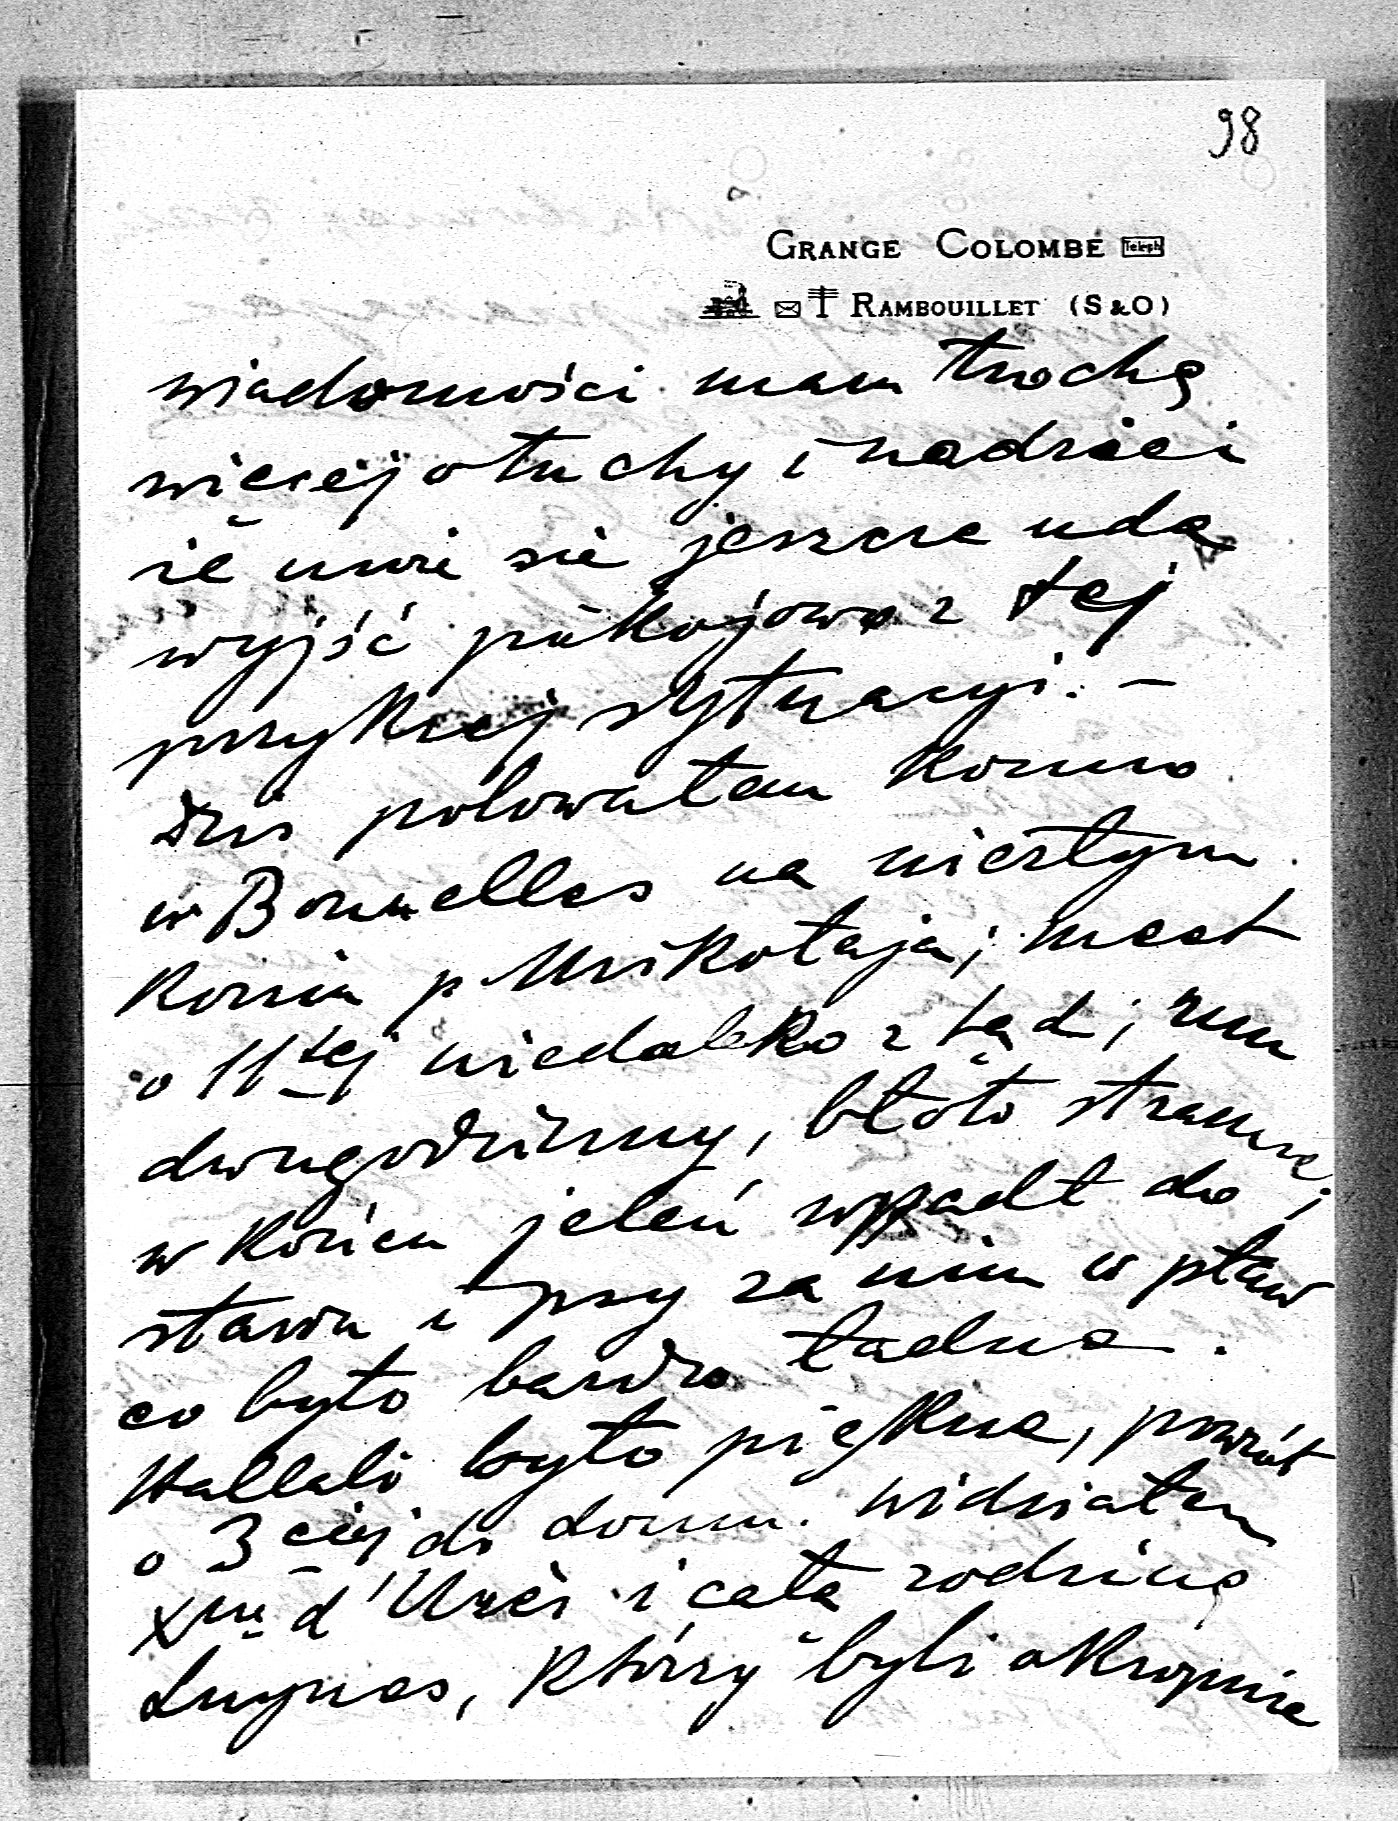 98
GRANGE COLOMBE Teleph
RAMBOUILLET (S & O)
wiadomości mam trochę
więcej otuchy i nadziei
że może się jeszcze uda
wyjść pokojowo z tej
przykrej sytuacyi. –
Dziś polowałem konno
w Bonnelles na niezłym
koniu p. Mikołaja; meet
o 11tej niedaleko z tąd; run
dwugodzinny, błoto straszne;
w końcu jeleń wpadł do
stawu i psy za nim w pław
co było bardzo ładne.
Hallali było piękne, powrót
o 3ciej do domu. Widziałem
Xnę d'Uzès i całą rodzinę
Luynes, którzy byli okropnie